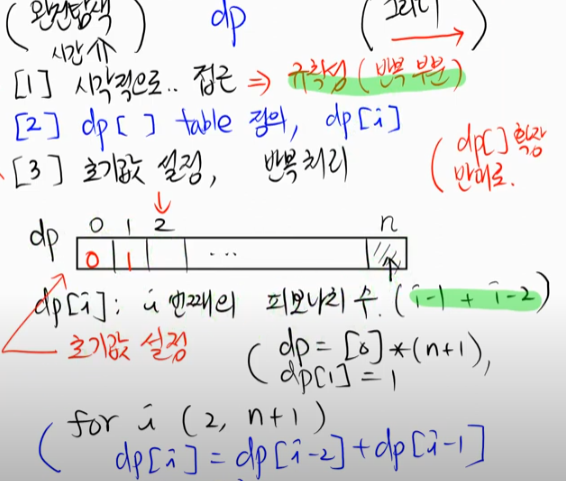 (완전탐색 시간↑) dp (그리디 →)
[1] 시각적으로.. 접근 ⇒ 규칙성 (반복 부분)
[2] dp[ ] table 정의, dp[i]
[3] 초기값 설정, 반복처리
(dp[] 확장
반대로.
0 1 2 n
dp 0 1 ...
dp[i]: i 번째의 피보나치 수. (i-1 + i-2)
초기값 설정
(dp = [0]*(n+1),
dp[1] = 1
(for i (2, n+1)
dp[i] = dp[i-2] + dp[i-1]